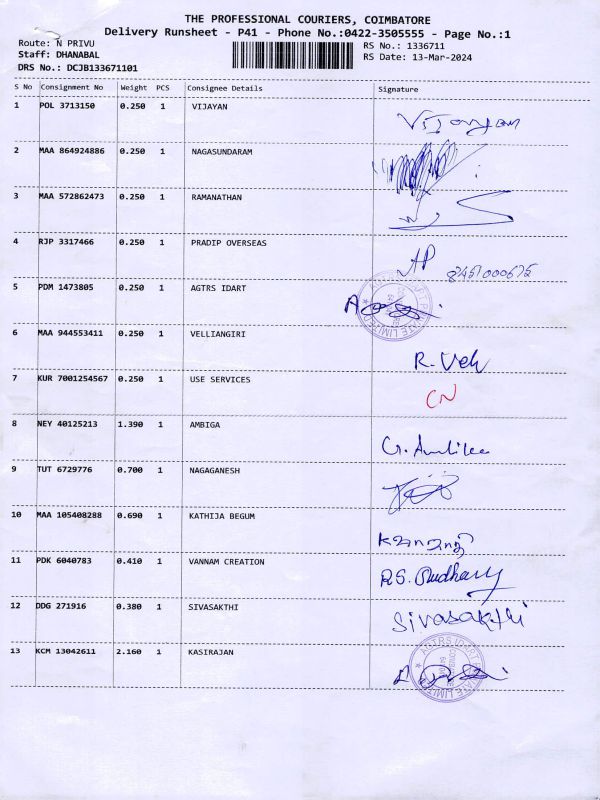 THE PROFESSIONAL COURIERS, COIMBATORE
Delivery Runsheet - P41 - Phone No.:0422-3505555 - Page No.:1
Route: N PRIVU
Staff: DHANABAL
DRS No.: DCJB133671101
RS No.: 1336711
RS Date: 13-Mar-2024
S No Consignment No Weight PCS Consignee Details Signature
1 POL 3713150 0.250 1 VIJAYAN Vijayan
2 MAA 864924886 0.250 1 NAGASUNDARAM
3 MAA 572862473 0.250 1 RAMANATHAN
4 RJP 3317466 0.250 1 PRADIP OVERSEAS AP
5 PDM 1473805 0.250 1 AGTRS IDART
6 MAA 944553411 0.250 1 VELLIANGIRI R. Veli
7 KUR 7001254567 0.250 1 USE SERVICES CN
8 NEY 40125213 1.390 1 AMBIGA
9 TUT 6729776 0.700 1 NAGAGANESH
10 MAA 105408288 0.690 1 KATHIJA BEGUM
11 PDK 6040783 0.410 1 VANNAM CREATION
12 DDG 271916 0.380 1 SIVASAKTHI Sivasakthi
13 KCM 13042611 2.160 1 KASIRAJAN